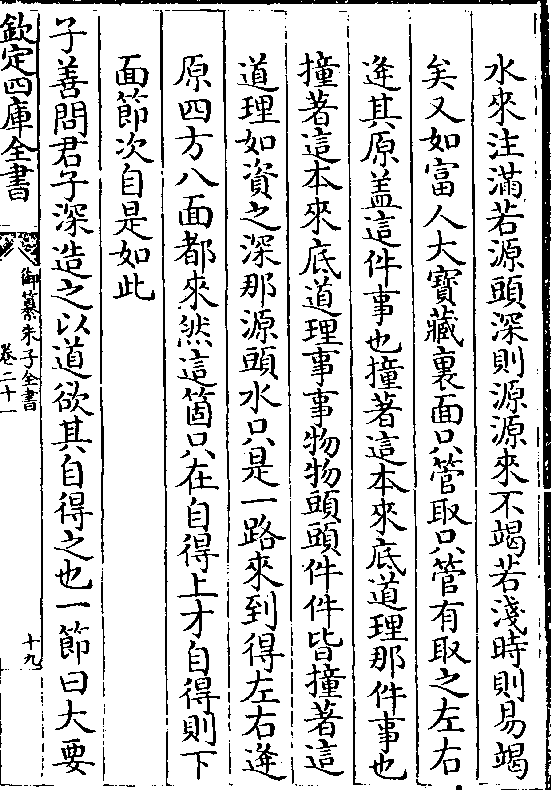 水來注滿若源頭深則源源來不竭若淺時則易竭
矣又如富人大寶藏裏面只管取只管有取之左右
逄其原盖這件事也撞著這本來底道理那件事也
撞著這本來底道理事事物物頭頭件件皆撞著這
道理如資之深那源頭水只是一路來到得左右逄
原四方八面都來然這箇只在自得上才自得則下
面節次自是如此
子善問君子深造之以道欲其自得之也一節曰大要
欽定四庫全書
御纂朱子全書
卷二十一
十九